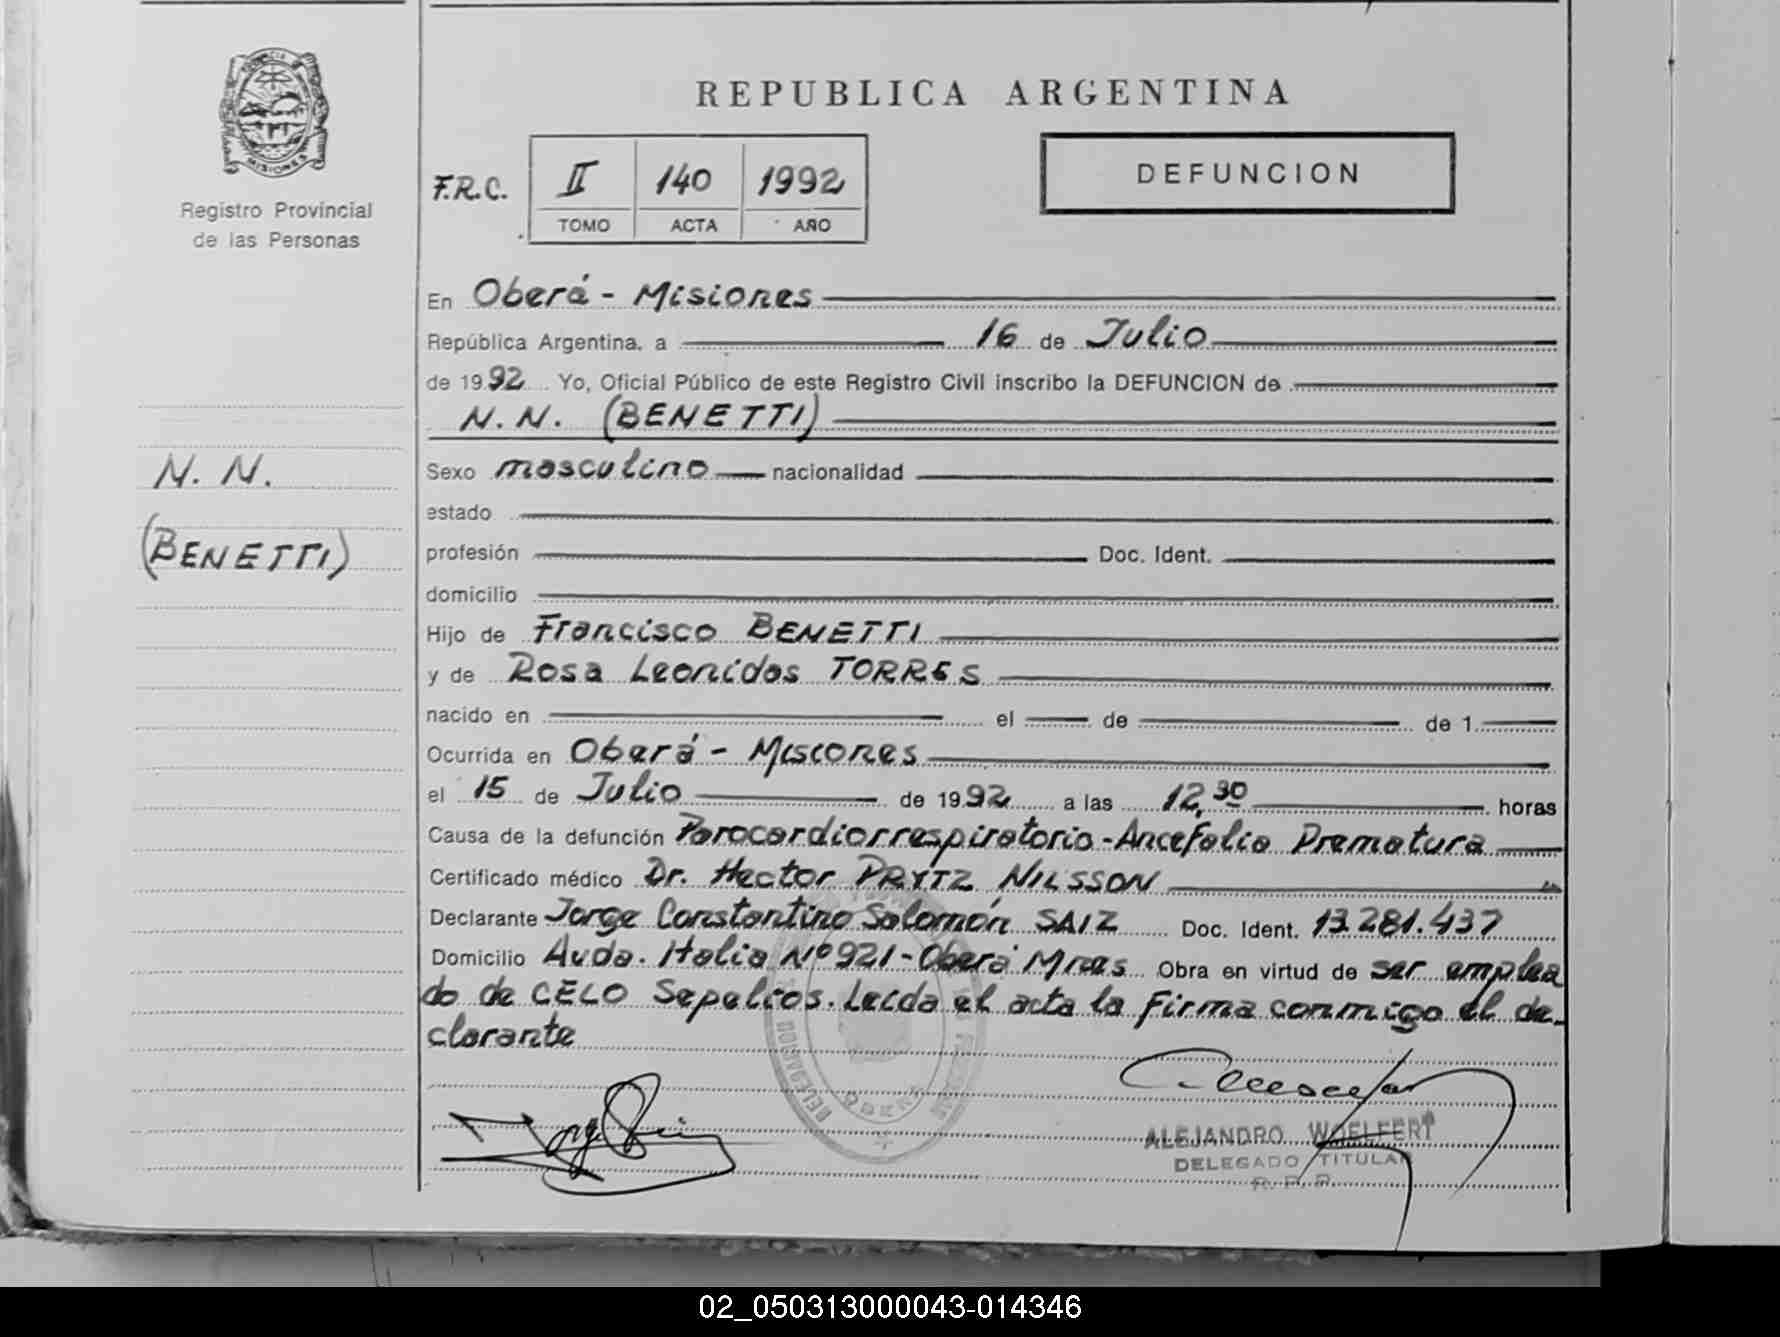 PROVINCIA DE
MISIONES
Registro Provincial
de las Personas
N. N.
(BENETTI)
REPUBLICA ARGENTINA
F.R.C. II 140 1992
TOMO ACTA AÑO
DEFUNCION
En Oberá - Misiones
República Argentina, a 16 de Julio
de 1992 Yo, Oficial Público de este Registro Civil inscribo la DEFUNCION de
N. N. (BENETTI)
Sexo masculino nacionalidad
estado
profesión Doc. Ident.
domicilio
Hijo de Francisco BENETTI
y de Rosa Leonidas TORRES
nacido en el de de 1
Ocurrida en Oberá - Misiones
el 15 de Julio de 1992 a las 12,30 horas
Causa de la defunción Parocardiorrespiratorio - Ancefalia Prematura
Certificado médico Dr. Hector PRYTZ NILSSON
Declarante Jorge Constantino Salomón SAIZ Doc. Ident. 13.281.437
Domicilio Avda. Italia Nº 921 - Oberá Mnes Obra en virtud de ser emplea
do de CELO Sepelios. Leida el acta la Firma conmigo el de_
clarante
DELEGACION
OBERA
ALEJANDRO WOELFERT
DELEGADO TITULAR
R. P. P.
02_050313000043-014346